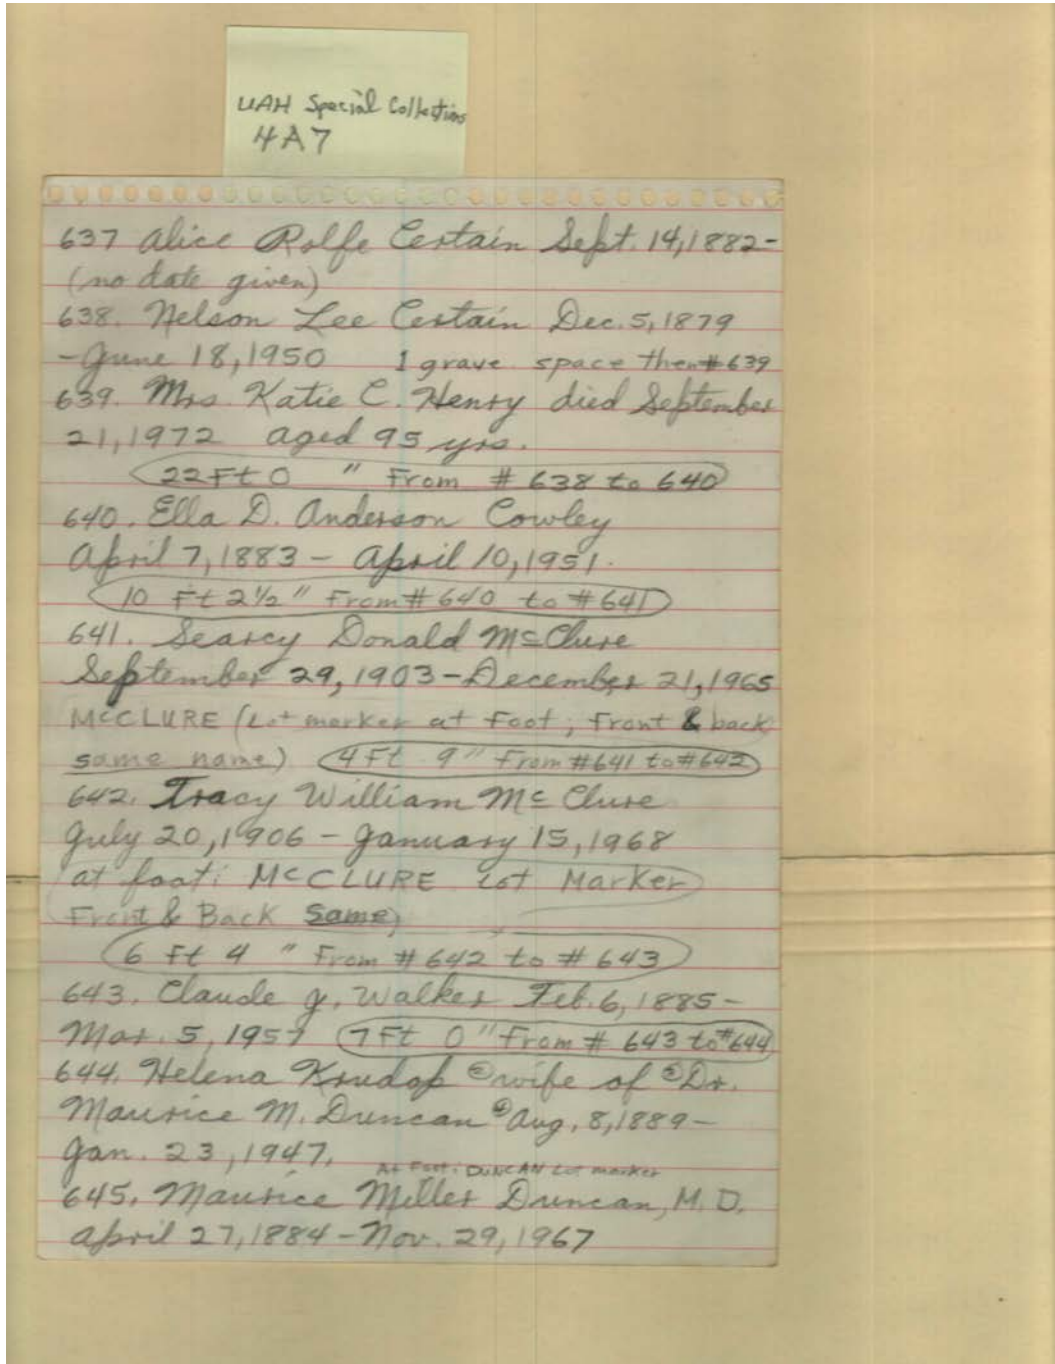 UAH Special Collections
4A7
637 Alice Rolfe Certain Sept. 14, 1882-
(no date given)
638. Nelson Lee Certain Dec. 5, 1879
-June 18, 1950 1 grave space then #639
639. Mrs. Katie C. Henry died September
21, 1972 aged 95 yrs.
22 Ft 0 " From # 638 to 640
640. Ella D. Anderson Cowley
April 7, 1883 - April 10, 1951.
10 Ft 2½" From # 640 to #641
641. Searcy Donald McClure
September 29, 1903 - December 21, 1965
McCLURE (Lot marker at Foot; Front & back
same name) 4 Ft 9" From #641 to #642
642. Tracy William McClure
July 20, 1906 - January 15, 1968
at foot: McCLURE Lot Marker
Front & Back Same)
6 Ft 4 " From # 642 to # 643
643. Claude J. Walker Feb. 6, 1885 -
Mar. 5, 1957 7 Ft 0" From # 643 to #644
644. Helena Krudop wife of Dr.
Maurice M. Duncan Aug. 8, 1889 -
Jan. 23, 1947.
At Foot: DUNCAN Lot marker
645. Maurice Miller Duncan, M.D.
April 27, 1884 - Nov. 29, 1967